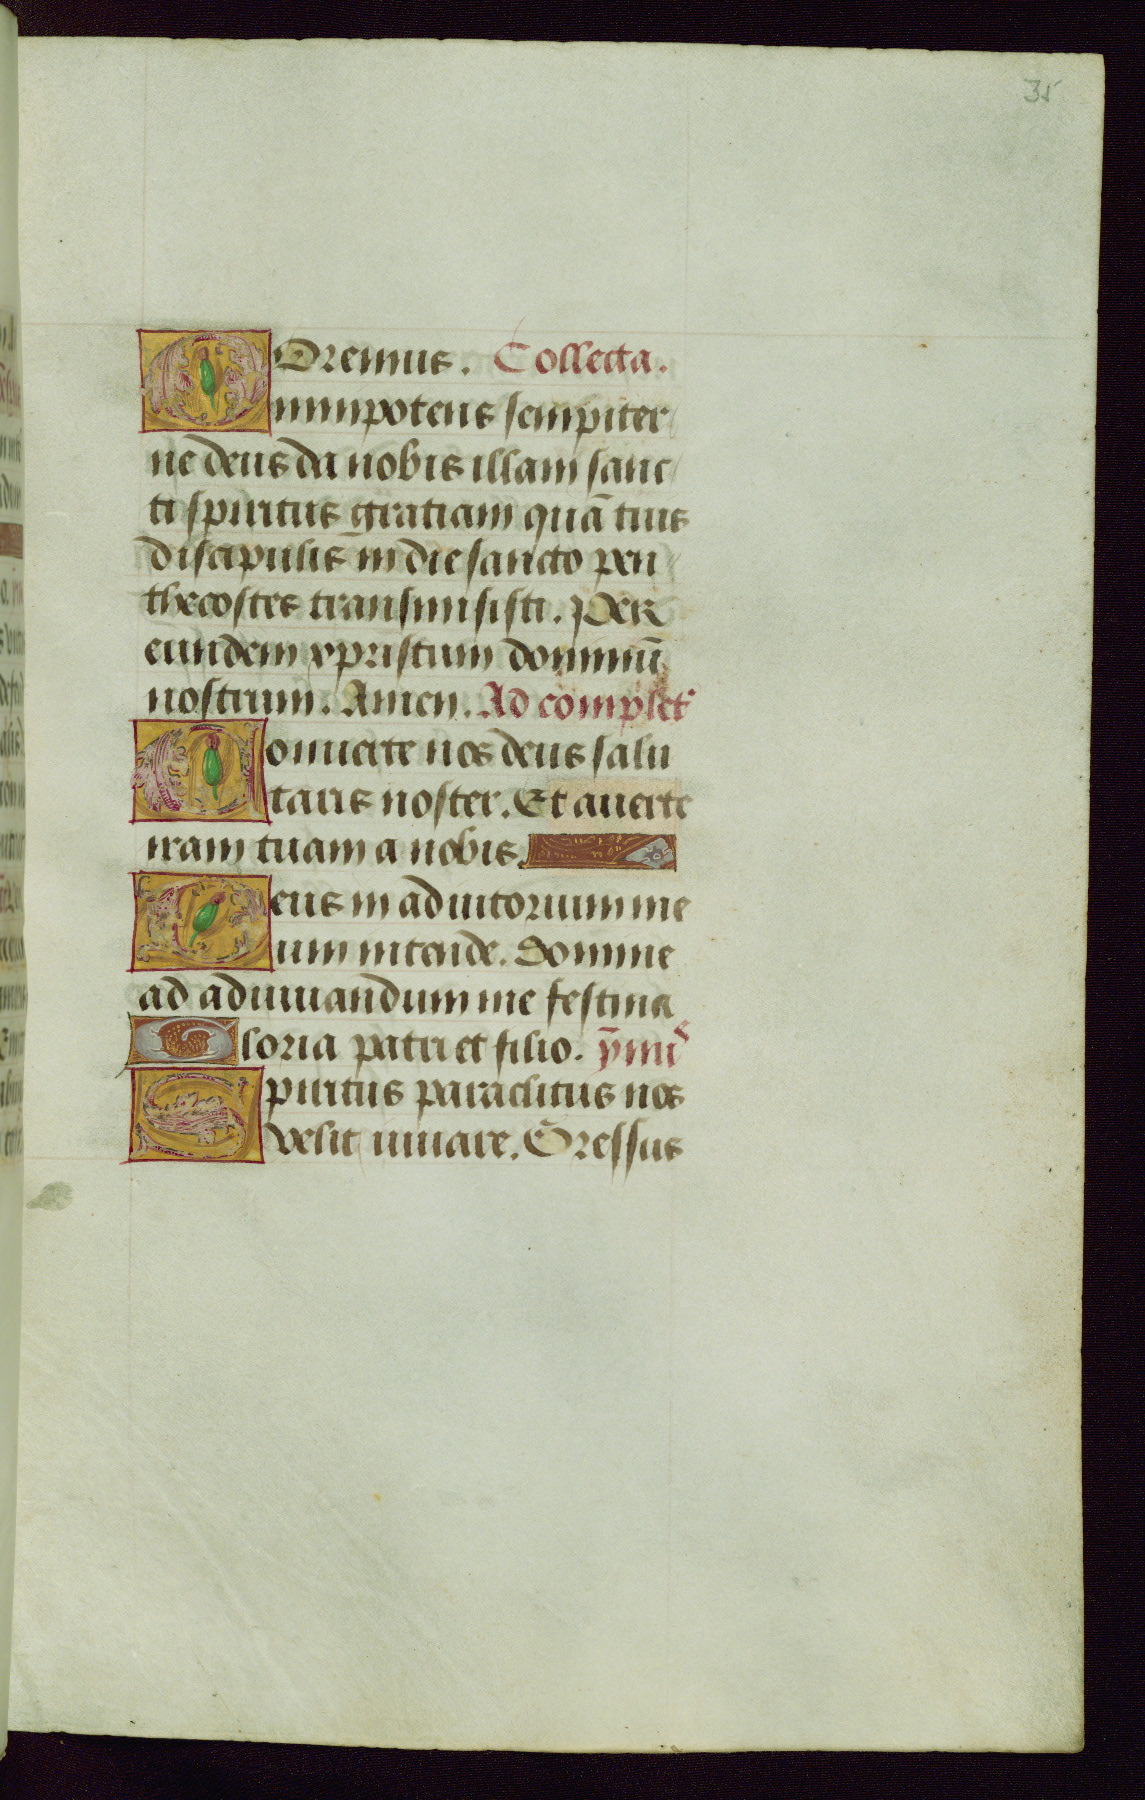 35
Oremus. Collecta.
Omnipotens sempiter
ne deus da nobis illam sanc
ti spiritus gratiam quā tuis
discipulis in die sancto pen
thecostes transmisisti. Per
eundem xpristum dominū
nostrum. Amen. Ad complet
Conuerte nos deus salu
taris noster. Et auerte
iram tuam a nobis.
Deus in adiutorium me
um intende. Domine
ad adiuuandum me festina
Gloria patri et filio. ȳmꝰ
Spiritus paraclitus nos
velit iuuare. Gressus